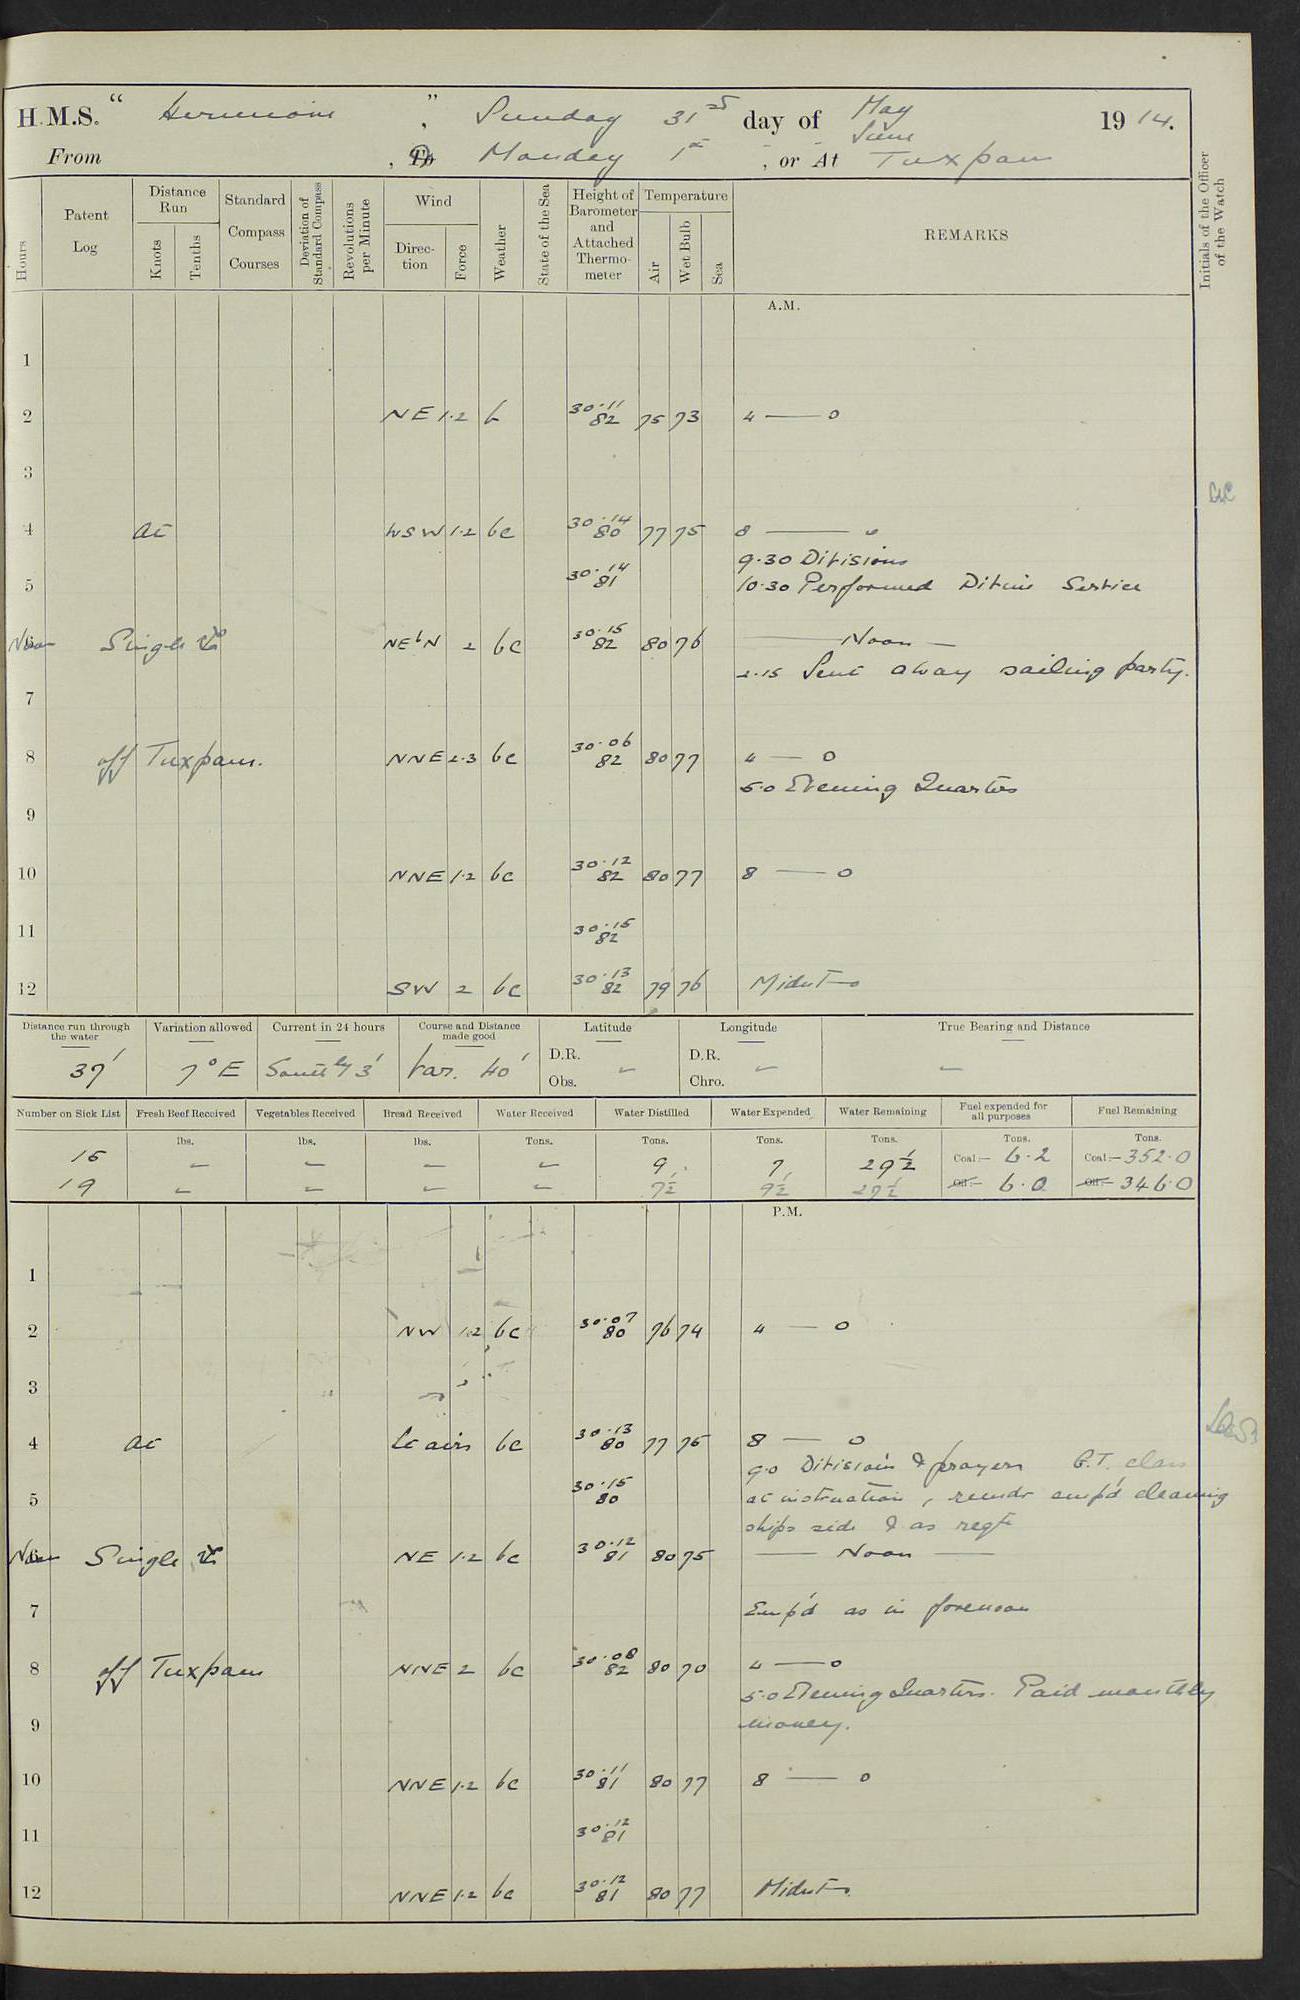 H.M.S. " Hermione " , Sunday 31st day of May 1914.
From , To Monday 1st June , or At Tuxpam
Hours Patent Log Distance Run Knots Tenths Standard Compass Courses Deviation of Standard Compass Revolutions per Minute Wind Direction Force Weather State of the Sea Height of Barometer and Attached Thermometer Temperature Air Wet Bulb Sea REMARKS Initials of the Officer of the Watch
A.M.
1
2 NE 1.2 b 30.11 82 75 73 4 — 0
3
4 at WSW 1.2 bc 30.14 80 77 75 8 — 0
9.30 Divisions
5 30.14 81 10.30 Performed Divine Service
Noon Single NEbN 2 bc 30.15 82 80 76 — Noon —
2.15 Sent away sailing party.
7
8 off Tuxpam. NNE 2.3 bc 30.06 82 80 77 4 — 0
5.0 Evening Quarters
9
10 NNE 1.2 bc 30.12 82 80 77 8 — 0
11 30.15 82
12 SW 2 bc 30.13 82 79 76 Midnt
Distance run through the water Variation allowed Current in 24 hours Course and Distance made good Latitude Longitude True Bearing and Distance
37' 7°E South'ly 3' Var. 40' D.R. Obs. – D.R. Chro. – –
Number on Sick List Fresh Beef Received Vegetables Received Bread Received Water Received Water Distilled Water Expended Water Remaining Fuel expended for all purposes Fuel Remaining
lbs. lbs. lbs. Tons. Tons. Tons. Tons. Tons. Tons.
15 – – – – 9 7 29½ Coal:– 6.2 Coal:– 352.0
19 – – – – 7½ 9½ 27½ Oil:– 6.0 Oil:– 346.0
P.M.
1
2 NW 1.2 bc 30.07 80 76 74 4 — 0
3
4 at Lt airs bc 30.13 80 77 75 8 — 0
9.0 Divisions & prayers G.T. class
5 30.15 80 at instruction, remdr emp'd cleaning
ships side & as reqte
Noon Single NE 1.2 bc 30.12 81 80 75 — Noon —
7 Emp'd as in forenoon
8 off Tuxpam NNE 2 bc 30.08 82 80 70 4 — 0
5.0 Evening Quarters. Paid monthly
9 money.
10 NNE 1.2 bc 30.11 81 80 77 8 — 0
11 30.12 81
12 NNE 1.2 bc 30.12 81 80 77 Midnt